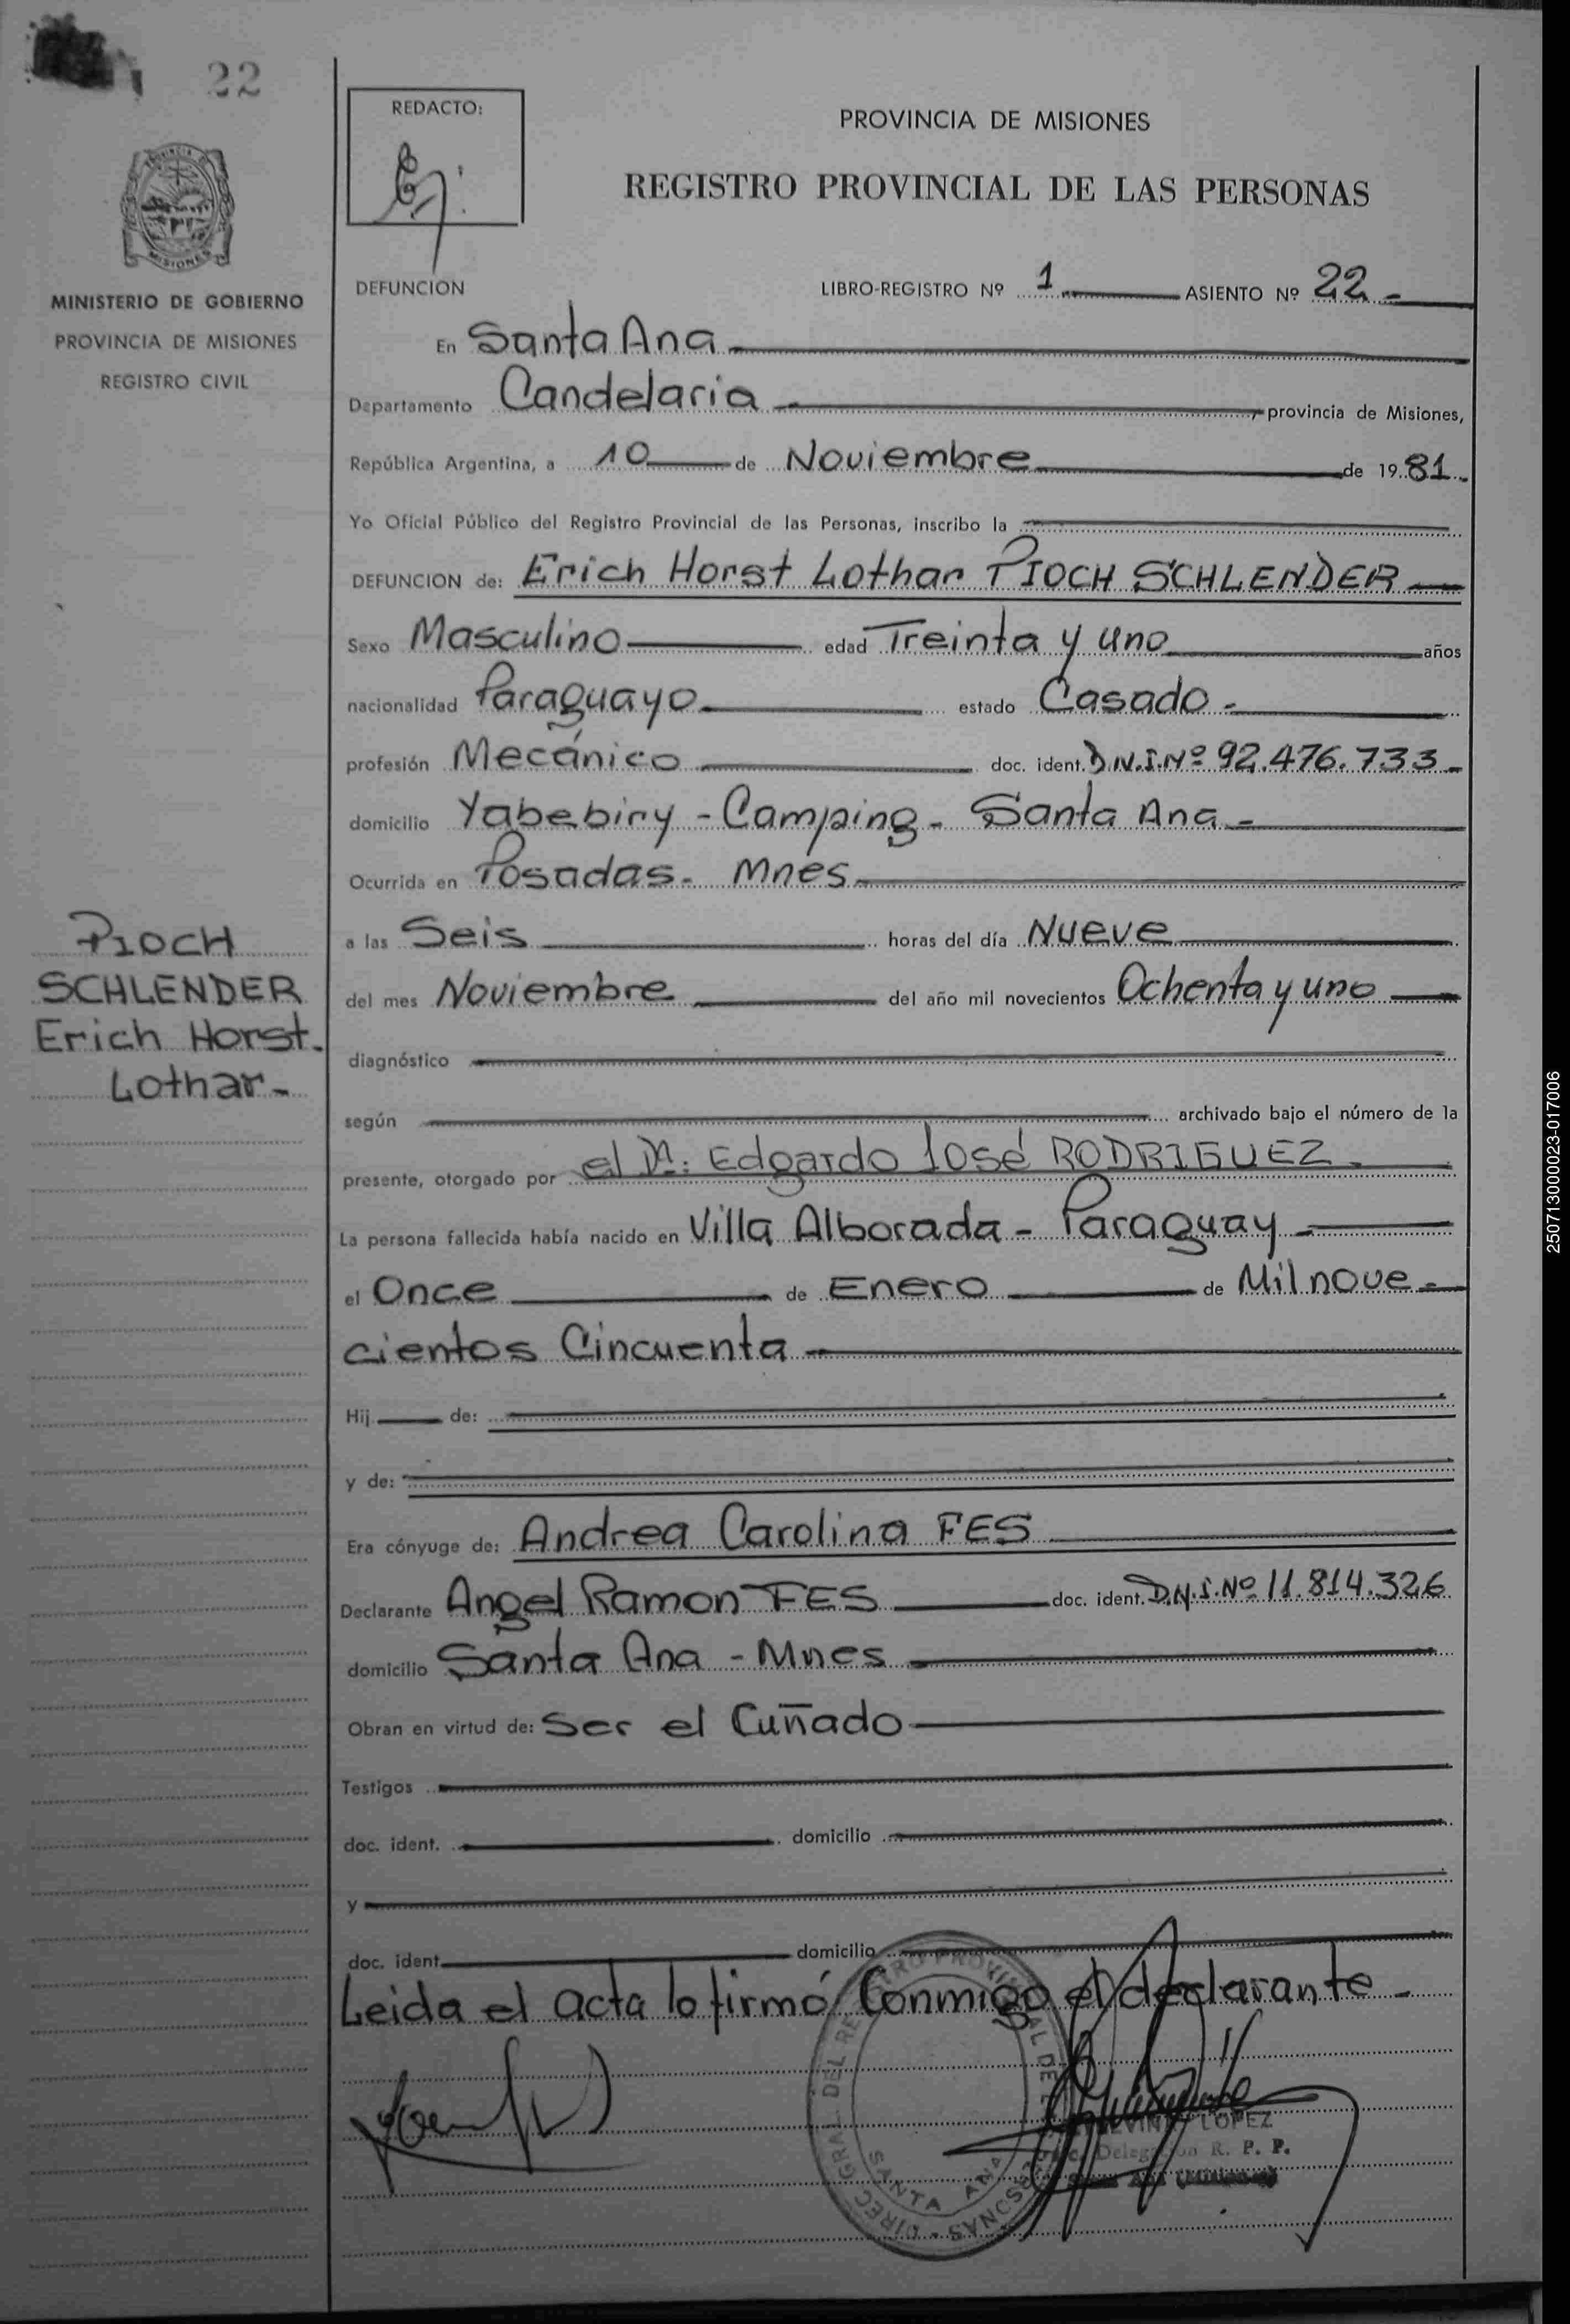 22
REDACTO:
PROVINCIA DE MISIONES
REGISTRO PROVINCIAL DE LAS PERSONAS
PROVINCIA DE
MISIONES
MINISTERIO DE GOBIERNO
PROVINCIA DE MISIONES
REGISTRO CIVIL
DEFUNCION LIBRO-REGISTRO Nº 1 ASIENTO Nº 22 -
En Santa Ana
Departamento Candelaria, provincia de Misiones,
República Argentina, a 10 de Noviembre de 19 81
Yo Oficial Público del Registro Provincial de las Personas, inscribo la
DEFUNCION de: Erich Horst Lothar PIOCH SCHLENDER
Sexo Masculino edad Treinta y uno años
nacionalidad Paraguayo estado Casado -
profesión Mecánico doc. ident. D.N.I.Nº 92.476.733 -
domicilio Yabebiry - Camping - Santa Ana -
Ocurrida en Posadas - Mnes
a las Seis horas del día Nueve
del mes Noviembre del año mil novecientos Ochenta y uno
diagnóstico
según archivado bajo el número de la
presente, otorgado por el Dr: Edgardo José RODRIGUEZ -
La persona fallecida había nacido en Villa Alborada - Paraguay -
el Once de Enero de Mil nove -
cientos Cincuenta
Hij de:
y de:
Era cónyuge de: Andrea Carolina FES
Declarante Angel Ramon FES doc. ident. D.N.I.Nº 11.814.326
domicilio Santa Ana - Mnes
Obran en virtud de: Ser el Cuñado
Testigos
doc. ident. domicilio
y
doc. ident. domicilio
Leida el acta lo firmó Conmigo el declarante -
PIOCH
SCHLENDER
Erich Horst.
Lothar -
DIREC. GRAL. DEL REGISTRO PROVINCIAL DE PERSONAS
SANTA ANA
LOPEZ
Delegación R. P. P.
Santa Ana (Misiones)
2507130000023-017006